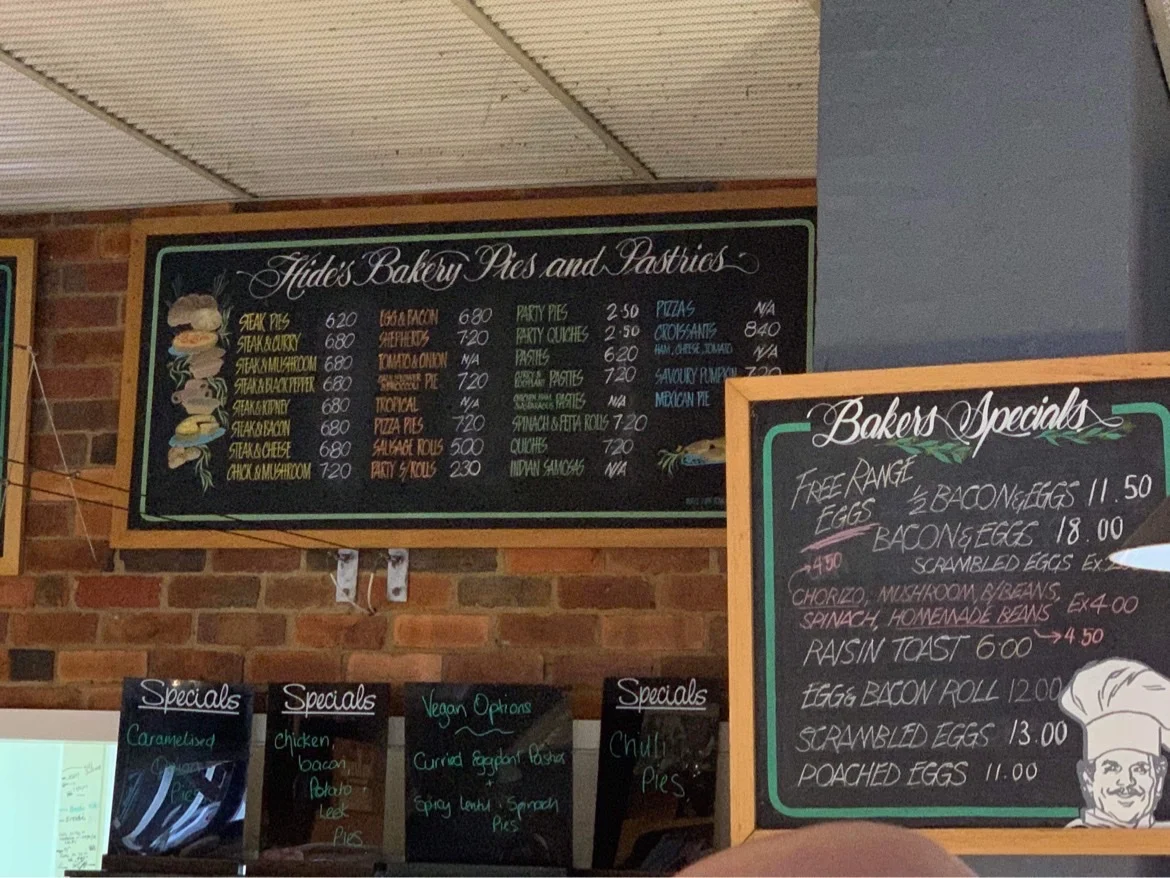 Hide's Bakery Pies and Pastries
STEAK PIES 6.20
STEAK & CURRY 6.80
STEAK & MUSHROOM 6.80
STEAK & BLACK PEPPER 6.80
STEAK & KIDNEY 6.80
STEAK & BACON 6.80
STEAK & CHEESE 6.80
CHICK & MUSHROOM 7.20
EGG & BACON 6.80
SHEPHERDS 7.20
TOMATO & ONION N/A
PIE 7.20
TROPICAL N/A
PIZZA PIES 7.20
SAUSAGE ROLLS 5.00
PARTY S/ROLLS 2.30
PARTY PIES 2.50
PARTY QUICHES 2.50
PASTIES 6.20
CURRY & EGGPLANT PASTIES 7.20
PASTIES N/A
SPINACH & FETTA ROLLS 7.20
QUICHES 7.20
INDIAN SAMOSAS N/A
PIZZAS N/A
CROISSANTS 8.40
HAM, CHEESE, TOMATO N/A
SAVOURY PUMPKIN 7.20
MEXICAN PIE
Bakers Specials
FREE RANGE
EGGS
½ BACON & EGGS 11.50
BACON & EGGS 18.00
→4.50
SCRAMBLED EGGS Ex
CHORIZO, MUSHROOM, B/BEANS,
SPINACH, HOMEMADE BEANS Ex 4.00
→4.50
RAISIN TOAST 6.00
EGG & BACON ROLL 12.00
SCRAMBLED EGGS 13.00
POACHED EGGS 11.00
Specials
Caramelised
Onion
Pies
Specials
Chicken,
bacon,
Potato
Leek
Pies
Vegan Options
Curried Eggplant Pasties
+
Spicy Lentil & Spinach
Pies
Specials
Chilli
Pies